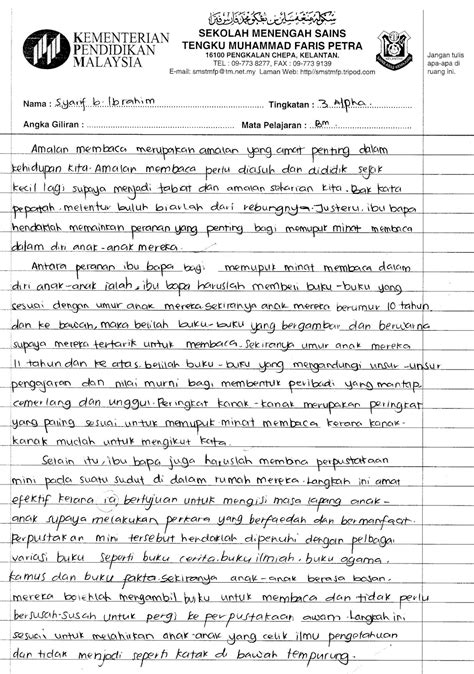 KEMENTERIAN
PENDIDIKAN
MALAYSIA
SEKOLAH MENENGAH SAINS
TENGKU MUHAMMAD FARIS PETRA
16100 PENGKALAN CHEPA, KELANTAN.
TEL : 09-773 8277, FAX : 09-773 9139
E-mail: smstmfp@tm.net.my Laman Web: http://smstmfp.tripod.com
Jangan tulis
apa-apa di
ruang ini.
Nama : Syarif b. Ibrahim Tingkatan : 3 Alpha
Angka Giliran : Mata Pelajaran : BM
Amalan membaca merupakan amalan yang amat penting dalam
kehidupan kita. Amalan membaca perlu diasuh dan dididik sejak
kecil lagi supaya menjadi tabiat dan amalan seharian kita. Bak kata
pepatah, melentur buluh biarlah dari rebungnya. Justeru, ibu bapa
hendaklah memainkan peranan yang penting bagi memupuk minat membaca
dalam diri anak-anak mereka.
Antara peranan ibu bapa bagi memupuk minat membaca dalam
diri anak-anak ialah, ibu bapa haruslah membeli buku-buku yang
sesuai dengan umur anak mereka. Sekiranya anak mereka berumur 10 tahun
dan ke bawah, maka belilah buku-buku yang bergambar dan berwarna
supaya mereka tertarik untuk membaca. Sekiranya umur anak mereka
11 tahun dan ke atas, belilah buku-buku yang mengandungi unsur-unsur
pengajaran dan nilai murni bagi membentuk peribadi yang mantap,
cemerlang dan unggul. Peringkat kanak-kanak merupakan peringkat
yang paling sesuai untuk memupuk minat membaca kerana kanak-
kanak mudah untuk mengikut kata.
Selain itu, ibu bapa juga haruslah membina perpustakaan
mini pada suatu sudut di dalam rumah mereka. Langkah ini amat
efektif kerana ia bertujuan untuk mengisi masa lapang anak-
anak supaya melakukan perkara yang berfaedah dan bermanfaat.
Perpustakan mini tersebut hendaklah dipenuhi dengan pelbagai
variasi buku seperti buku cerita, buku ilmiah, buku agama,
kamus dan buku fakta. Sekiranya anak-anak berasa bosan,
mereka bolehlah mengambil buku untuk membaca dan tidak perlu
bersusah-susah untuk pergi ke perpustakaan awam. Langkah ini
sesuai untuk melahirkan anak-anak yang celik ilmu pengetahuan
dan tidak menjadi seperti katak di bawah tempurung.